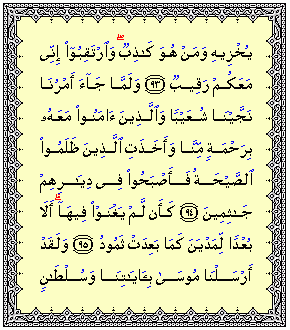 يُخْزِيهِ وَمَنْ هُوَ كَـٰذِبٌۭ ۖ وَٱرْتَقِبُوٓا۟ إِنِّى
مَعَكُمْ رَقِيبٌۭ ﴿٩٣﴾ وَلَمَّا جَآءَ أَمْرُنَا
نَجَّيْنَا شُعَيْبًۭا وَٱلَّذِينَ ءَامَنُوا۟ مَعَهُۥ
بِرَحْمَةٍۢ مِّنَّا وَأَخَذَتِ ٱلَّذِينَ ظَلَمُوا۟
ٱلصَّيْحَةُ فَأَصْبَحُوا۟ فِى دِيَـٰرِهِمْ
جَـٰثِمِينَ ﴿٩٤﴾ كَأَن لَّمْ يَغْنَوْا۟ فِيهَآ ۗ أَلَا
بُعْدًۭا لِّمَدْيَنَ كَمَا بَعِدَتْ ثَمُودُ ﴿٩٥﴾ وَلَقَدْ
أَرْسَلْنَا مُوسَىٰ بِـَٔايَـٰتِنَا وَسُلْطَـٰنٍۢ